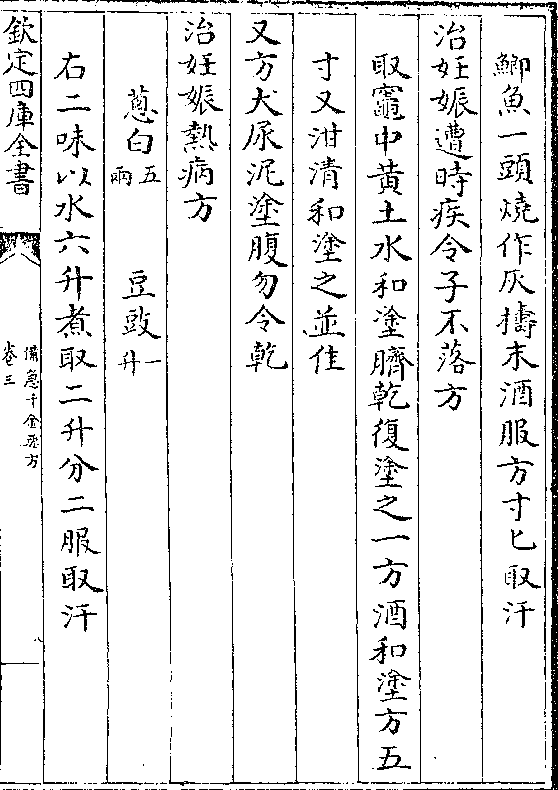 鯽魚一頭燒作灰擣末酒服方寸匕取汗
治妊娠遭時疾令子不落方
取竈中黃土水和塗臍乾復塗之一方酒和塗方五
寸又泔清和塗之並佳
又方犬尿泥塗腹勿令乾
治妊娠熱病方
葱白五兩 豆豉一升
右二味以水六升煮取二升分二服取汗
欽定四庫全書
備急千金要方
卷三